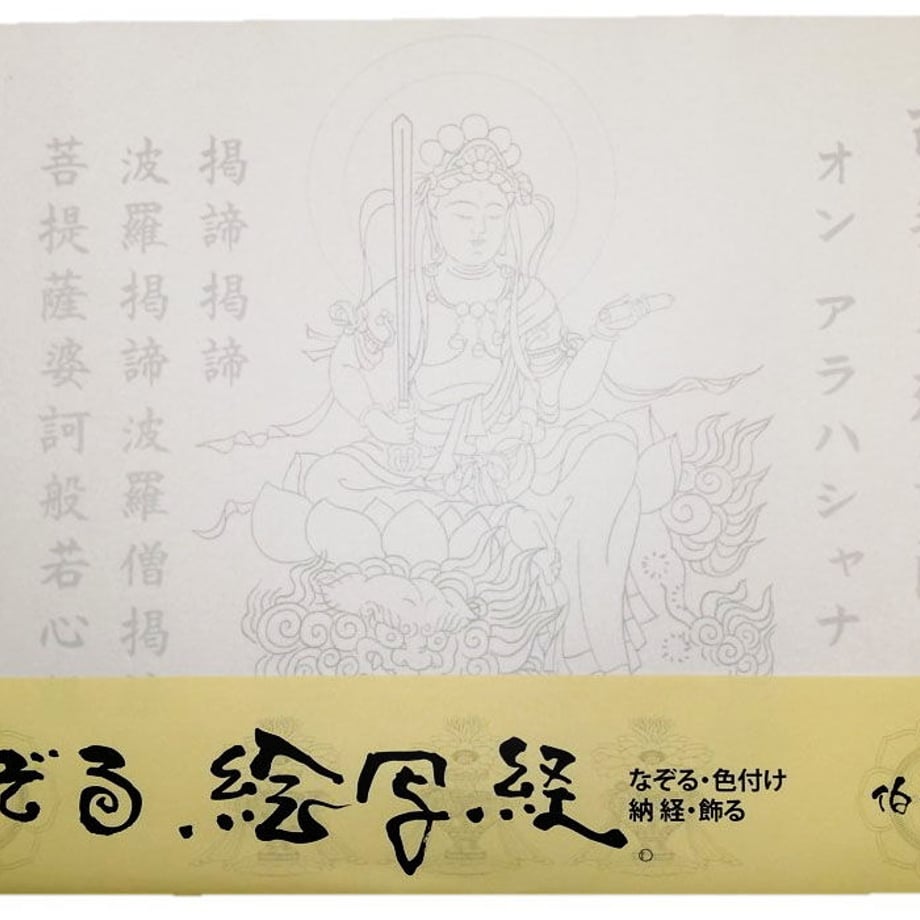 オン アラハシャナ
掲諦掲諦
波羅掲諦波羅僧掲
菩提薩婆訶般若心
ぞる 絵写経
なぞる・色付け
納経・飾る
伯